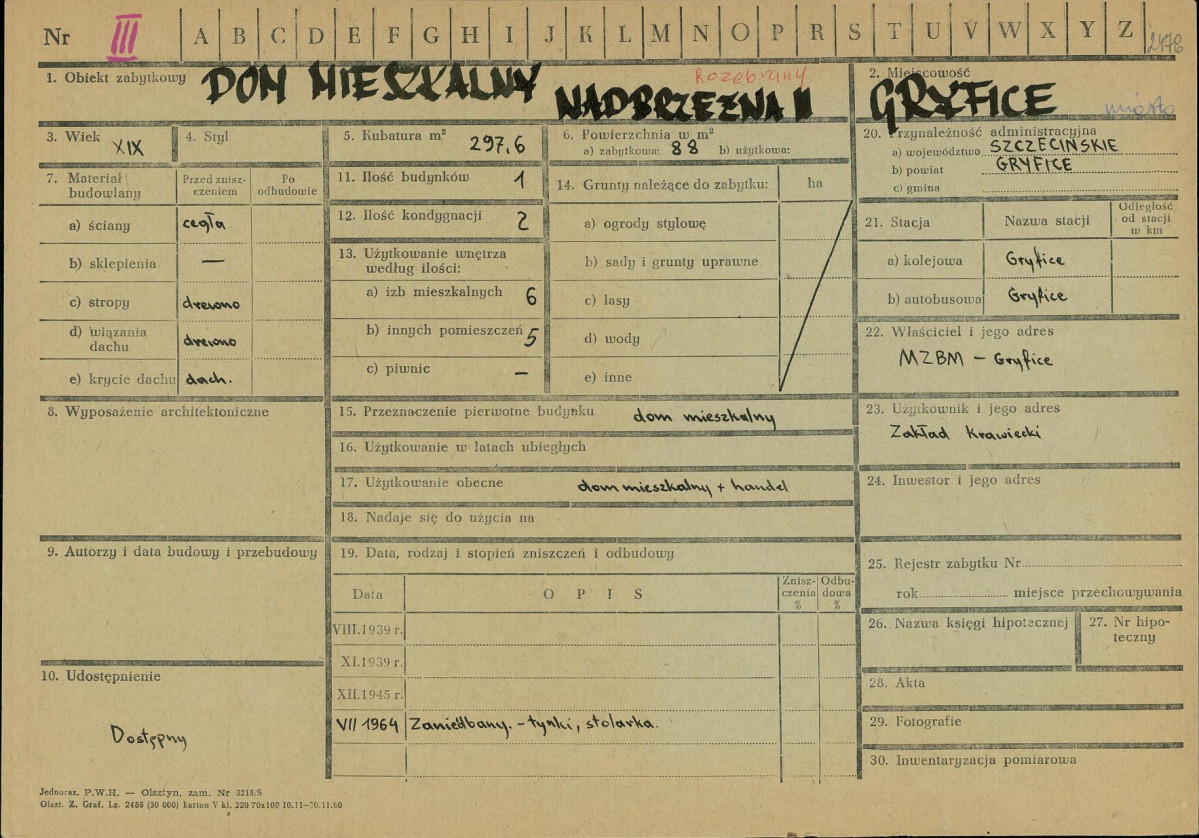 Nr III A B C D E F G H I J K L M N O P R S T U V W X Y Z 2476
1. Obiekt zabytkowy DOM MIESZKALNY Rozebrany
NADBRZEŻNA 11
2. Miejscowość
GRYFICE miasto
3. Wiek XIX
4. Styl
5. Kubatura m³ 297,6
6. Powierzchnia w m²
a) zabytkowa: 88 b) użytkowa:
7. Materiał budowlany
Przed zniszczeniem
Po odbudowie
a) ściany cegła
b) sklepienia —
c) stropy drewno
d) wiązania dachu drewno
e) krycie dachu dach.
8. Wyposażenie architektoniczne
9. Autorzy i data budowy i przebudowy
10. Udostępnienie
Dostępny
11. Ilość budynków 1
12. Ilość kondygnacji 2
13. Użytkowanie wnętrza
według ilości:
a) izb mieszkalnych 6
b) innych pomieszczeń 5
c) piwnic —
14. Grunty należące do zabytku: ha
a) ogrody stylowę
b) sady i grunty uprawne
c) lasy
d) wody
e) inne
15. Przeznaczenie pierwotne budynku dom mieszkalny
16. Użytkowanie w latach ubiegłych
17. Użytkowanie obecne dom mieszkalny + handel
18. Nadaje się do użycia na
19. Data, rodzaj i stopień zniszczeń i odbudowy
Data OPIS Zniszczenia % Odbudowa %
VIII.1939 r.
XI.1939 r.
XII.1945 r.
VII 1964 Zaniedbany. – tynki, stolarka.
20. Przynależność administracyjna
a) województwo SZCZECIŃSKIE
b) powiat GRYFICE
c) gmina
21. Stacja Nazwa stacji Odległość od stacji w km
a) kolejowa Gryfice
b) autobusowa Gryfice
22. Właściciel i jego adres
MZBM – Gryfice
23. Użytkownik i jego adres
Zakład Krawiecki
24. Inwestor i jego adres
25. Rejestr zabytku Nr
rok miejsce przechowywania
26. Nazwa księgi hipotecznej
27. Nr hipoteczny
28. Akta
29. Fotografie
30. Inwentaryzacja pomiarowa
Jednoraz. P.W.H. — Olsztyn, zam. Nr 3215/S
Olszt. Z. Graf. Lz. 2485 (30 000) karton V kl. 220 70x100 10.11—30.11.60